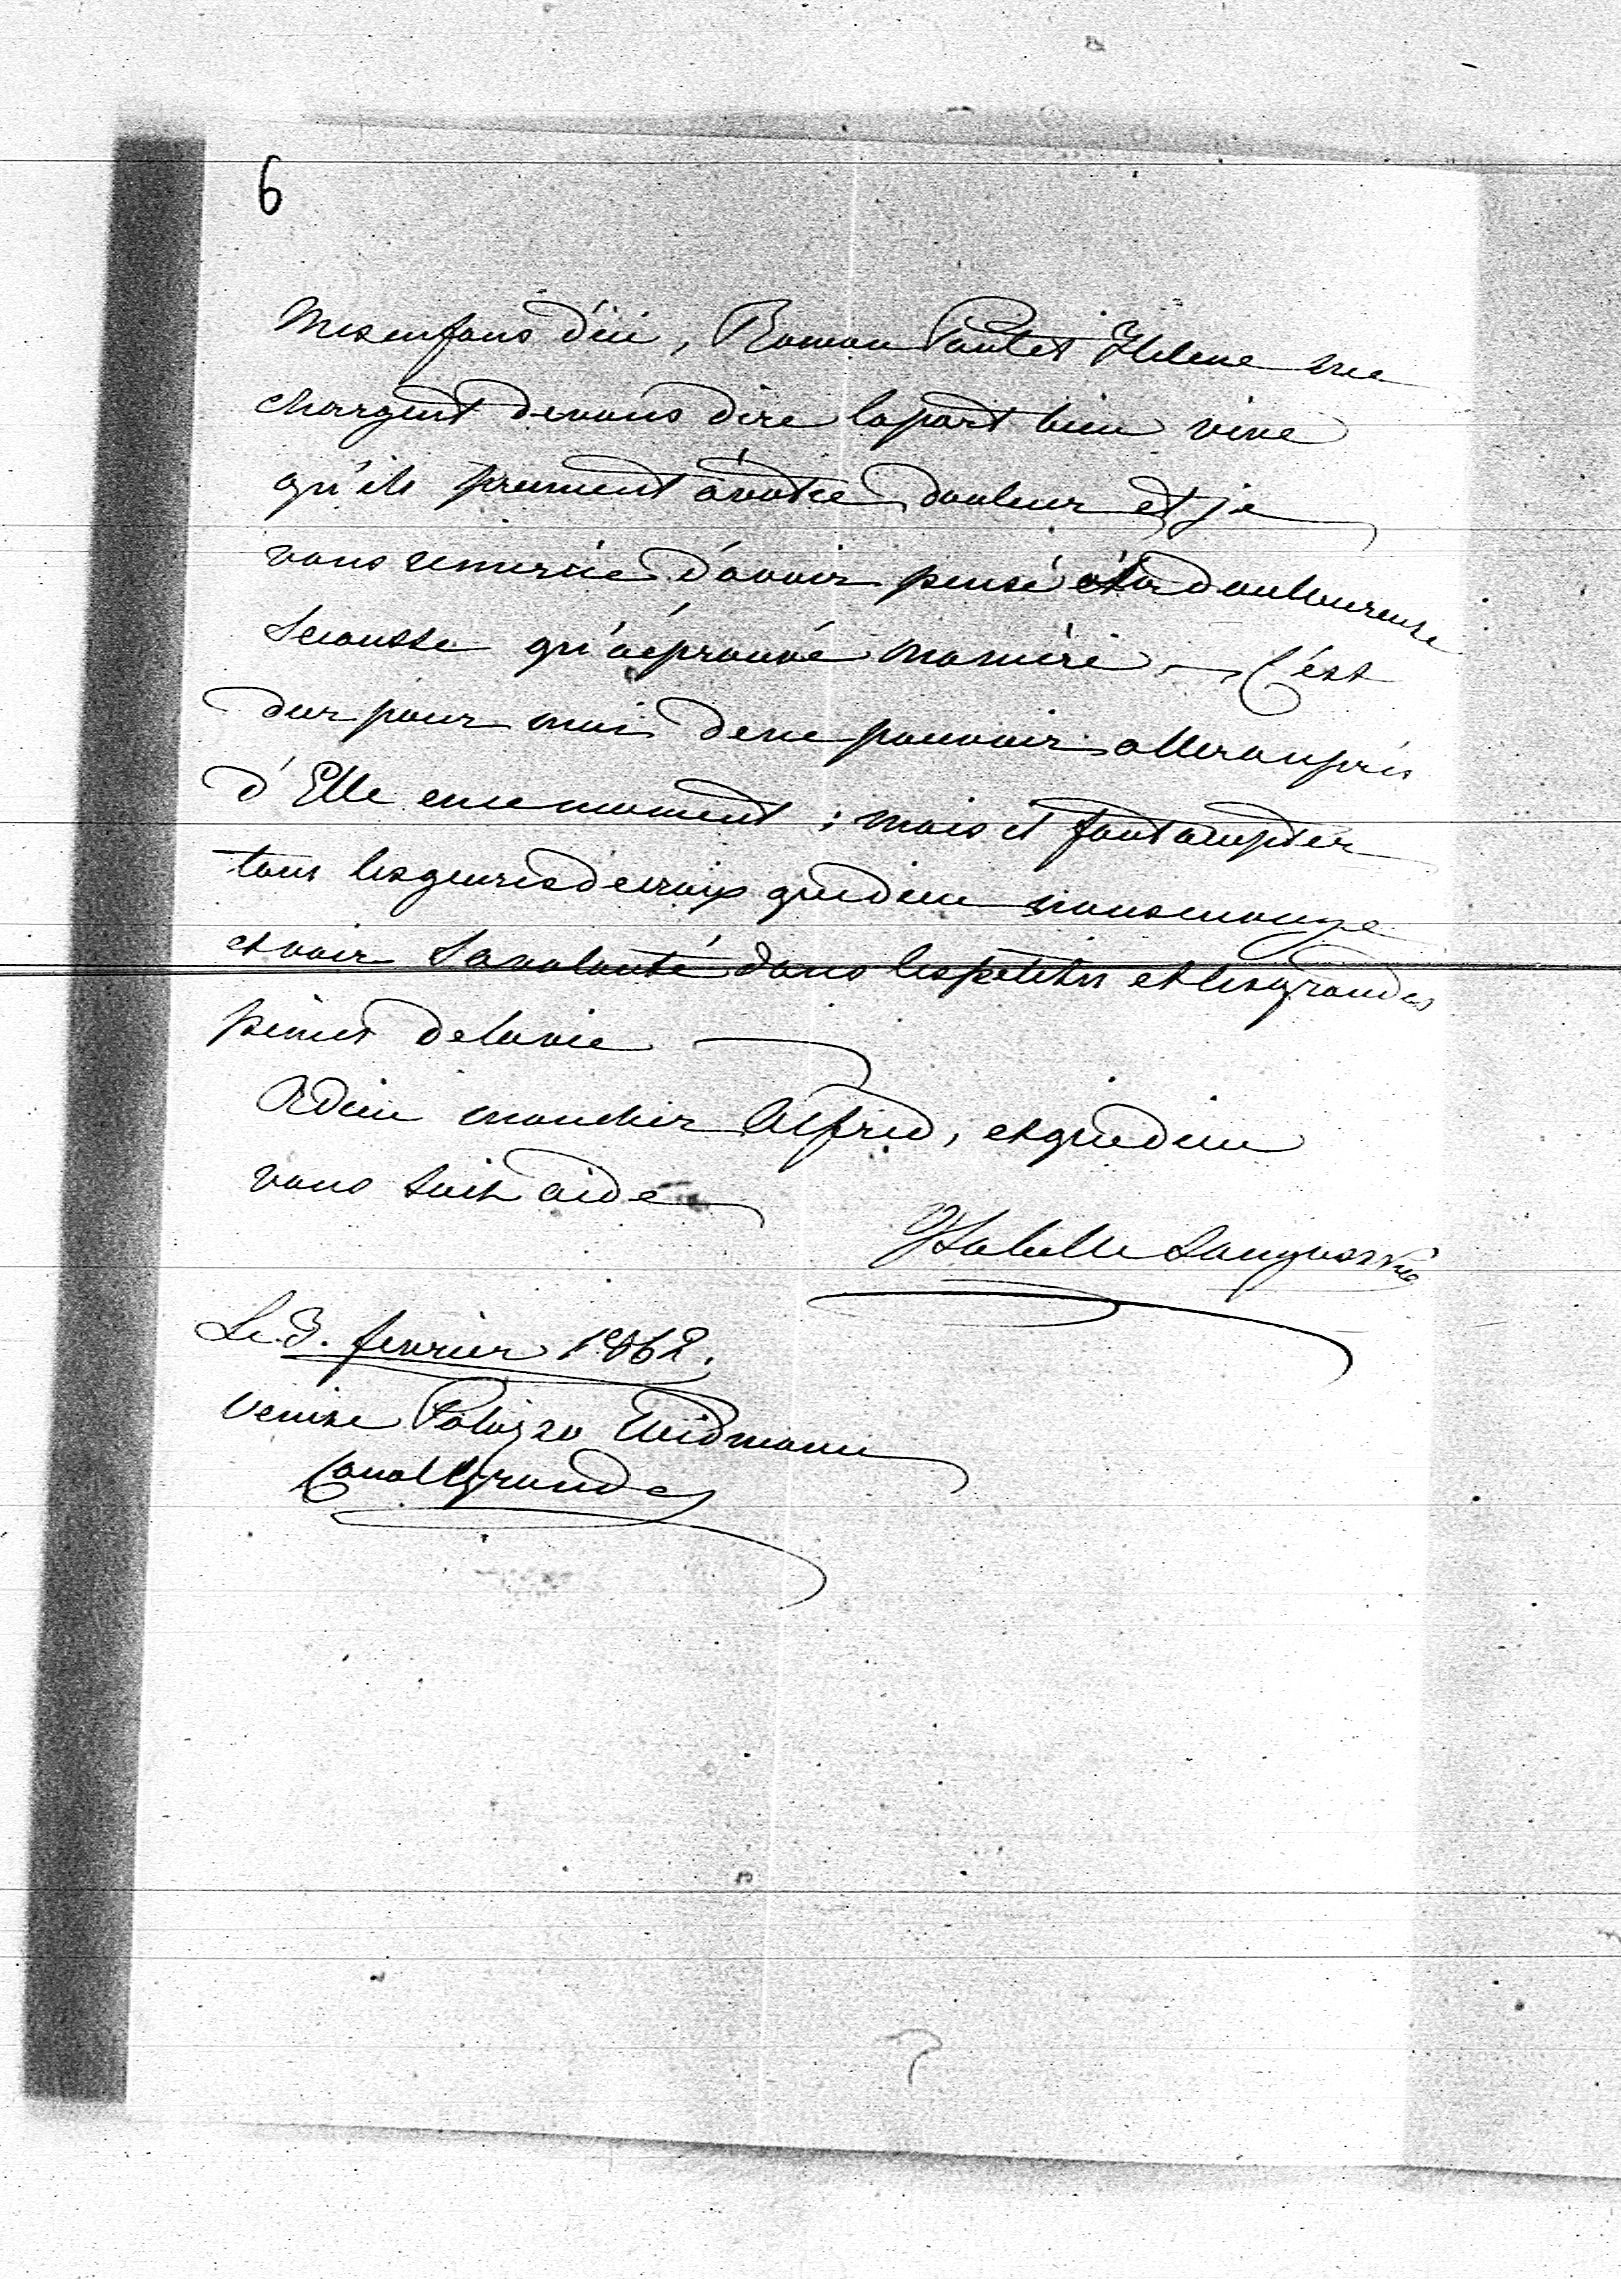 6
Mes enfans d'ici, Roman Paul et Hélène me
chargent de vous dire la part bien vive
qu'ils prennent à votre douleur et je
vous remercie d'avoir pensé à la douloureuse
secousse qu'a éprouvé ma mère — C'est
dur pour moi de ne pouvoir aller auprès
d'Elle en ce moment ; mais il faut accepter
tous les genres de croix que dieu nous envoye
et voir Sa volonté dans les petites et les grandes
peines de la vie
Adieu mon cher Alfred, et que dieu
vous soit aide
Isabelle Sanguszko
Le 3. fevrier 1862.
Venise Palazzo Widmann
Canal Grande